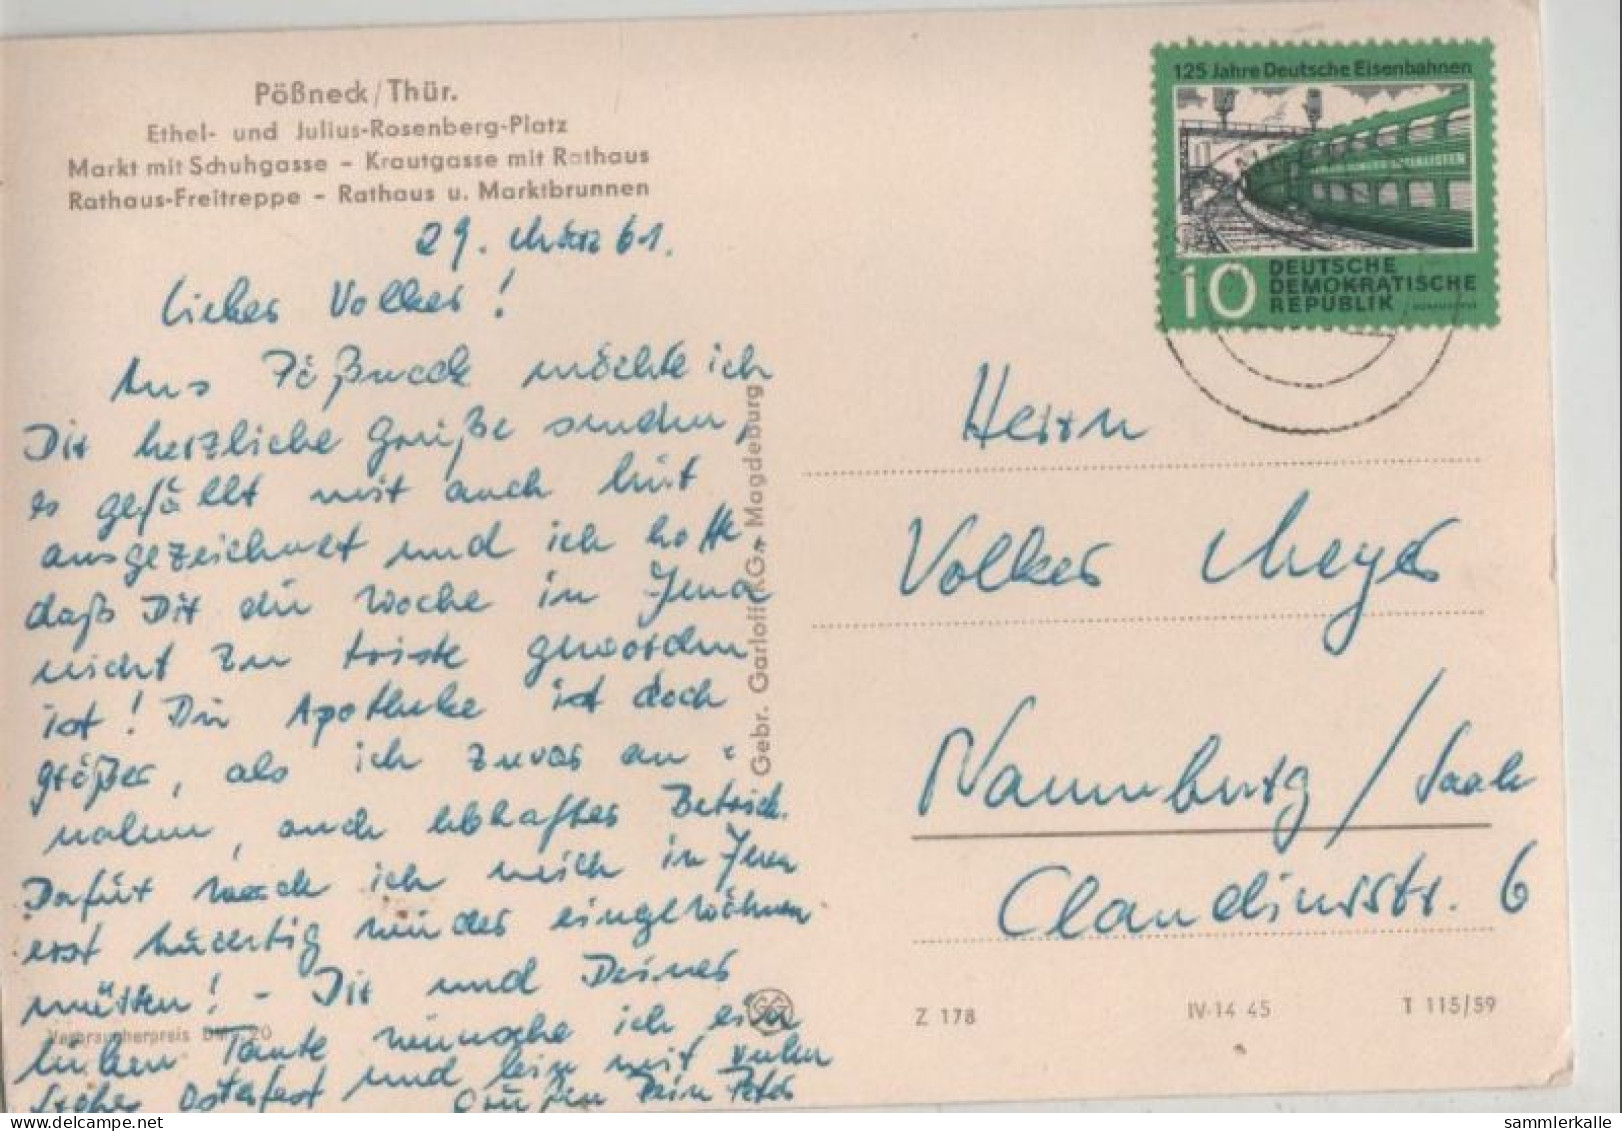 Pößneck / Thür.
Ethel- und Julius-Rosenberg-Platz
Markt mit Schuhgasse – Krautgasse mit Rathaus
Rathaus-Freitreppe – Rathaus u. Marktbrunnen
29. März 61.
Lieber Volker!
Aus Pößneck möchte ich
Dir herzliche Grüße senden,
es gefällt mir auch hier
ausgezeichnet und ich hoffe
daß Dir die Woche in Jena
nicht zu triste geworden
ist! Die Apotheke ist doch
größer, als ich zuvor an-
nahm, auch lebhafter Betrieb.
Dafür werde ich mich in Jena
erst tüchtig wieder eingewöhnen
müssen! - Dir und Deiner
lieben Tante wünsche ich ein
frohes Osterfest und bin mit vielen
Grüßen Dein Peter
Verbraucherpreis DM -.20
Gebr. Garloff KG., Magdeburg
125 Jahre Deutsche Eisenbahnen
10
DEUTSCHE
DEMOKRATISCHE
REPUBLIK
Herrn
Volker Meyer
Naumburg / Saale
Claudiusstr. 6
Z 178 IV-14 45 T 115/59
sammlerkalle @ delcampe.net